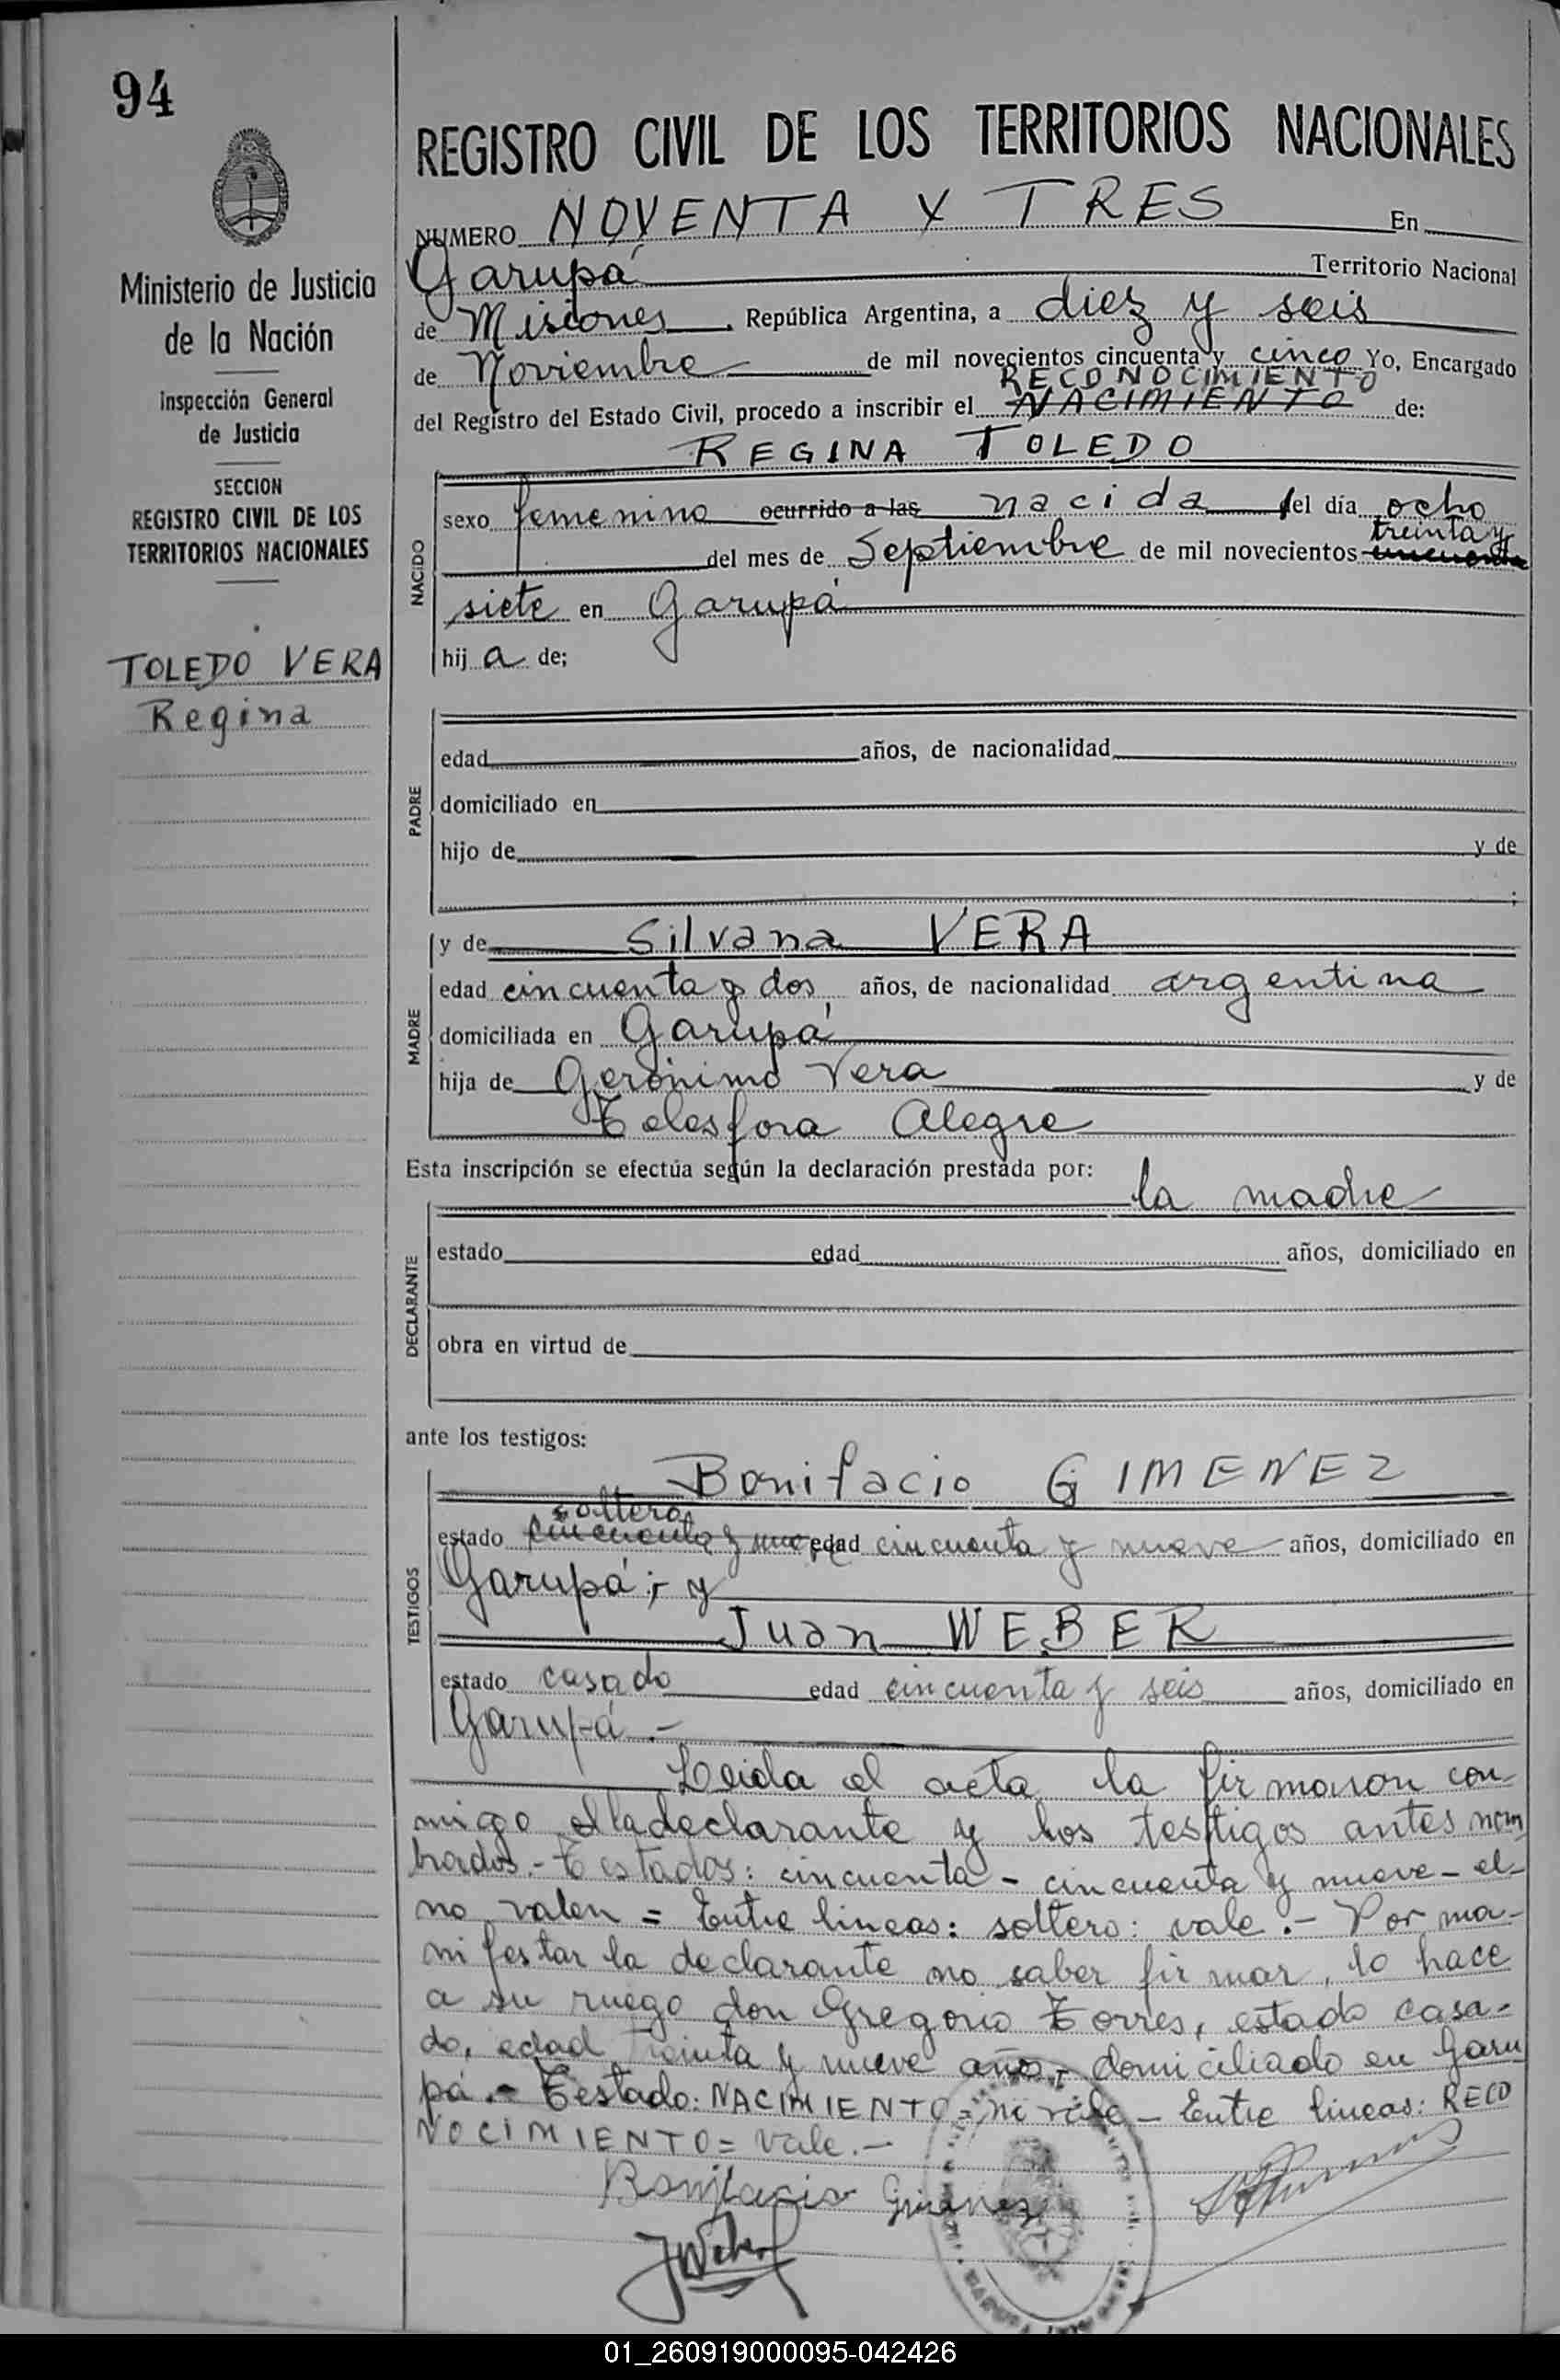 94
Ministerio de Justicia
de la Nación
Inspección General
de Justicia
SECCION
REGISTRO CIVIL DE LOS
TERRITORIOS NACIONALES
TOLEDO VERA
Regina
REGISTRO CIVIL DE LOS TERRITORIOS NACIONALES
NUMERO NOVENTA Y TRES En
Garupá Territorio Nacional
de Misiones, República Argentina, a diez y seis
de Noviembre de mil novecientos cincuenta y cinco Yo, Encargado
RECONOCIMIENTO
del Registro del Estado Civil, procedo a inscribir el NACIMIENTO de:
REGINA TOLEDO
NACIDO
sexo femenino ocurrido a las nacida el día ocho
treinta y
del mes de Septiembre de mil novecientos cincuenta
siete en Garupá
hija de;
PADRE
edad años, de nacionalidad
domiciliado en
hijo de y de
;
MADRE
y de Silvana VERA
edad cincuenta y dos años, de nacionalidad argentina
domiciliada en Garupá
hija de Gerónimo Vera y de
Telesfora Alegre
Esta inscripción se efectúa según la declaración prestada por:
la madre
DECLARANTE
estado edad años, domiciliado en
obra en virtud de
ante los testigos:
TESTIGOS
Bonifacio GIMENEZ
soltero
estado cincuenta y nueve edad cincuenta y nueve años, domiciliado en
Garupá; y
Juan WEBER
estado casado edad cincuenta y seis años, domiciliado en
Garupá.-
Leida el acta la firmaron con-
migo el la declarante y los testigos antes nom
brados.- Testados: cincuenta - cincuenta y nueve - el-
no valen = Entre lineas: soltero: vale.- Por ma-
nifestar la declarante no saber firmar, lo hace
a su ruego don Gregorio Torres, estado casa-
do, edad treinta y nueve años, domiciliado en Garu
pá.- Testado: NACIMIENTO = no vale - Entre lineas: RECO
NOCIMIENTO = Vale.-
Bonifacio Gimenez
JWeber
01_260919000095-042426